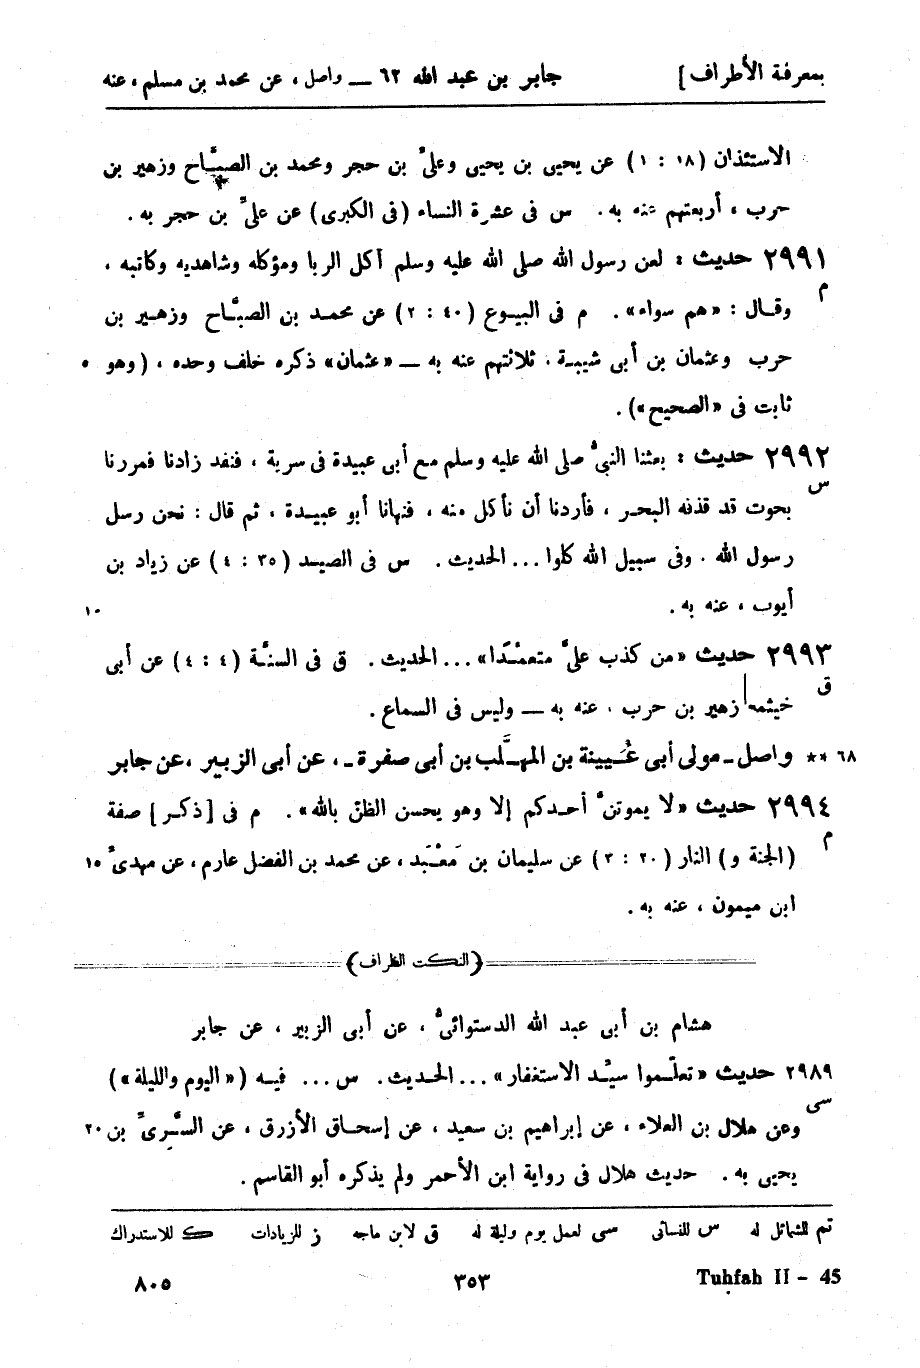 بمعرفة الأطراف] جابر بن عبد الله ٦٢ — واصل ، عن محمد بن مسلم ، عنه
الاستئذان (١٨ : ١) عن يحيى بن يحيى وعلىّ بن حجر ومحمد بن الصبَّاح وزهير بن
حرب ، أربعتهم عنه به . س فى عشرة النساء (فى الكبرى) عن علىّ بن حجر به .
٢٩٩١ حديث : لعن رسول الله صلى الله عليه وسلم آكل الربا ومؤكله وشاهديه وكاتبه ،
م
وقال : «هم سواء» . م فى البيوع (٤٠ : ٢) عن محمد بن الصبَّاح وزهير بن
حرب وعثمان بن أبى شيبة ، ثلاثتهم عنه به — «عثمان» ذكره خلف وحده ، (وهو ٥
ثابت فى «الصحيح») .
٢٩٩٢ حديث : بعثنا النبىُّ صلى الله عليه وسلم مع أبى عبيدة فى سرية ، فنفد زادنا فمررنا
س
بحوت قد قذفه البحر ، فأردنا أن نأكل منه ، فنهانا أبو عبيدة ، ثم قال : نحن رسل
رسول الله . وفى سبيل الله كلوا ... الحديث . س فى الصيد (٣٥ : ٤) عن زياد بن
أيوب ، عنه به . ١٠
٢٩٩٣ حديث «من كذب علىَّ متعمّدًا» ... الحديث . ق فى السنَّة (٤ : ٤) عن أبى
ق
خيثمه زهير بن حرب ، عنه به — وليس فى السماع .
٦٨ ** واصل ـ مولى أبى عُيينة بن المهلَّب بن أبى صفرة ـ ، عن أبى الزبير ، عن جابر
٢٩٩٤ حديث «لا يموتنّ أحدكم إلا وهو يحسن الظنّ بالله» . م فى [ذكر] صفة
م
(الجنة و) النار (٢٠ : ٣) عن سليمان بن مَعْبَد ، عن محمد بن الفضل عارم ، عن مهدىّ ١٥
ابن ميمون ، عنه به .
(النكت الظراف)
هشام بن أبى عبد الله الدستوائىُّ ، عن أبى الزبير ، عن جابر
٢٩٨٩ حديث «تعلّموا سيّد الاستغفار» ... الحديث . س ... فيه («اليوم والليلة»)
سى
وعن هلال بن العلاء ، عن إبراهيم بن سعيد ، عن إسحاق الأزرق ، عن السَّرِىّ بن ٢٠
يحيى به . حديث هلال فى رواية ابن الأحمر ولم يذكره أبو القاسم .
تم للشمائل له س للنسائى سى لعمل يوم وليلة له ق لابن ماجه ز للزيادات ك للاستدراك
Tuḥfah II – 45 ٣٥٣ ٨٠٥